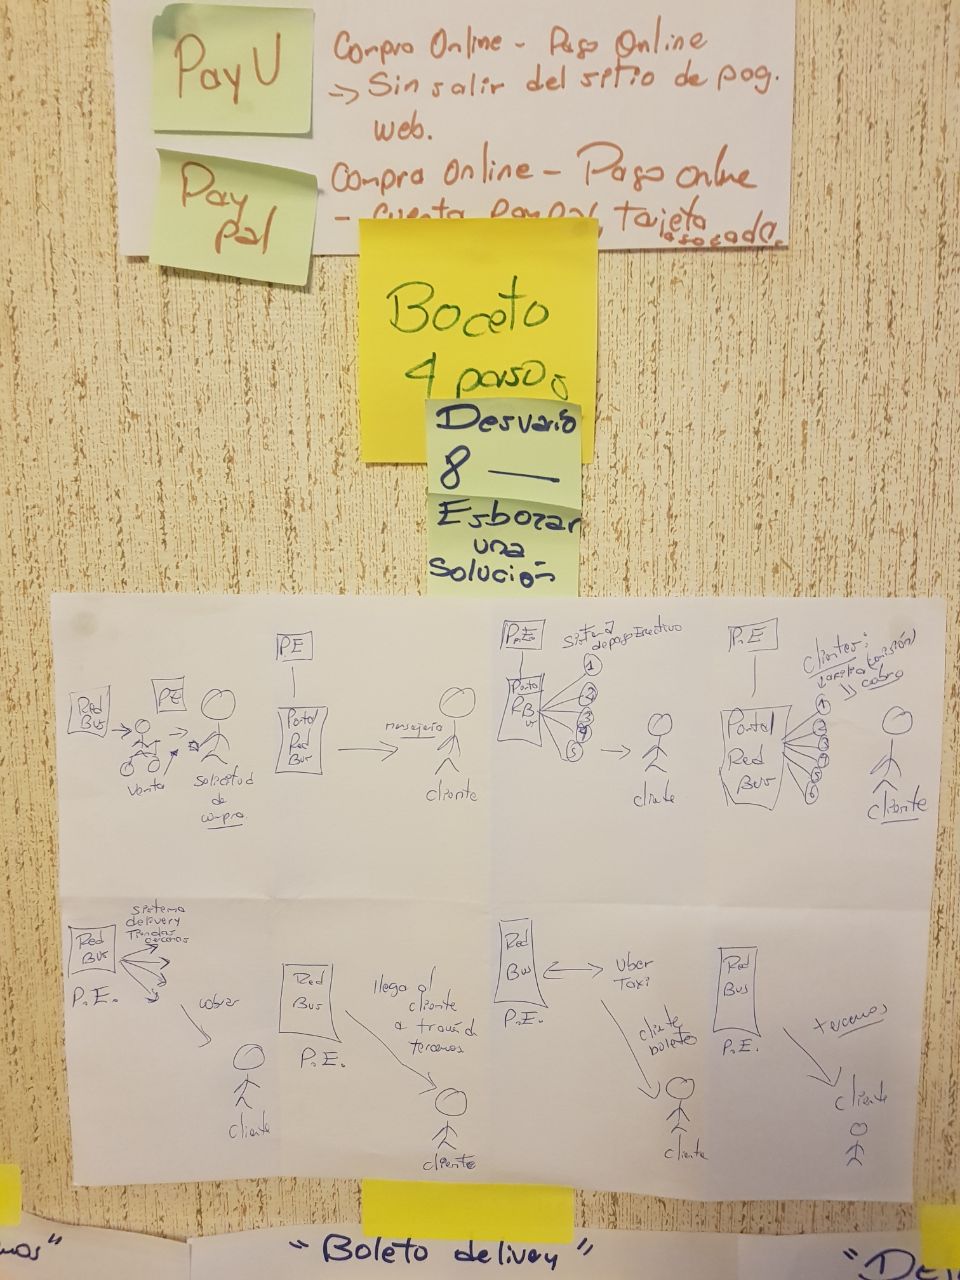 PayU
Compra Online - Pago Online
→ Sin salir del sitio de pag.
web.
Pay
pal
Compra Online - Pago online
- cuenta PayPal, Tarjeta
asociada.
Boceto
4 pasos
Desvario
8 —
Esbozar
una
Solución
Red
Bus
PE
Venta
Solicitud
de
compra
PE
Portal
Red
Bus
mensajería
cliente
P.E.
Sistema
de pago Efectivo
Portal
RB
1
2
3
4
5
cliente
P.E
Clientes:
cobro
Portal
Red
Bus
cliente
sistema
delivery
Tiendas
cercanas
Red
Bus
P.E.
cobrar
cliente
Red
Bus
P.E.
llega al
cliente
a través d
terceros
cliente
Red
Bus
P.E.
Uber
Taxi
cliente
boleto
cliente
Red
Bus
P.E.
terceros
cliente
"Boleto delivey"